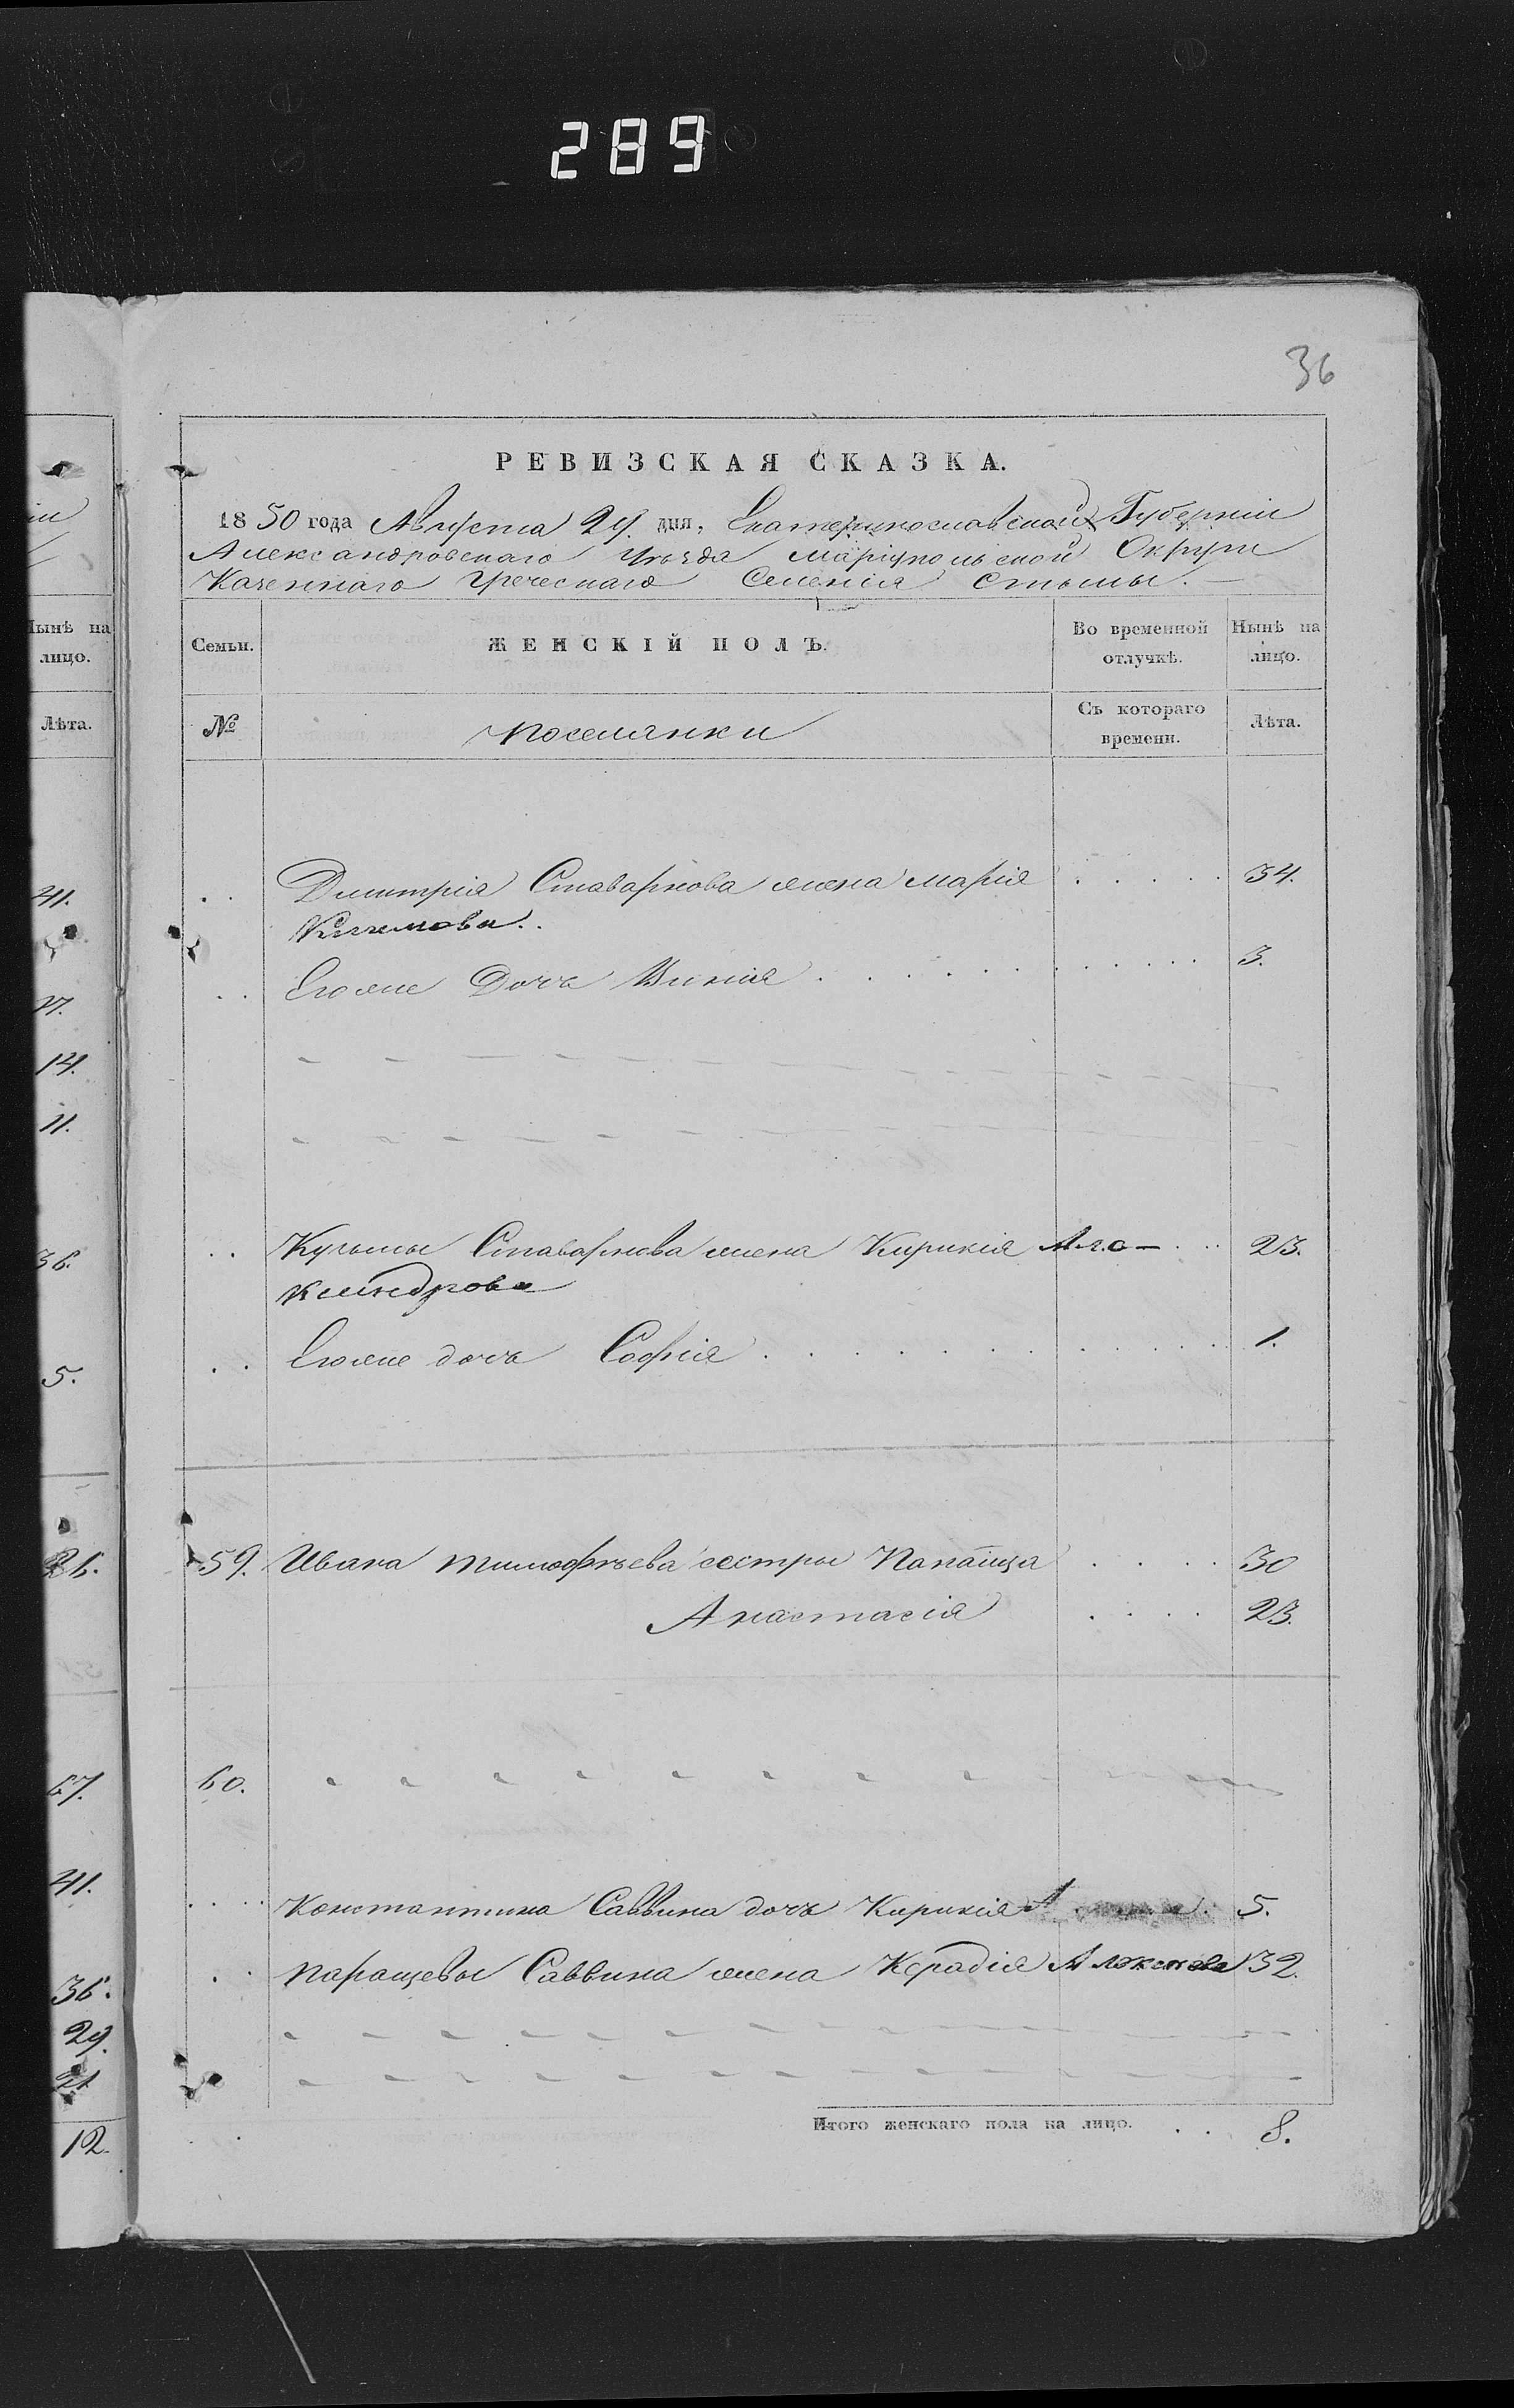 289
36
РЕВИЗСКАЯ СКАЗКА.
1850 года Августа 29. дня, Екатеринославской Губерніи
Александровскаго Уѣзда Маріупольской Округи
Казеннаго Греческаго Селенія Стылы.
Семьи. ЖЕНСКІЙ ПОЛЪ. Во временной отлучкѣ. Нынѣ на лицо.
№ Поселянки Съ котораго времени. Лѣта.
Дмитрія Ставаркова жена Марія 34.
Его же Дочь 3.
Кузьмы Ставаркова жена Кирикія Але- 23.
ксандрова
Его же дочь Софія 1.
59. Ивана Тимофѣева сестры Папаица 30
Анастасія 23.
60.
Константина Саввина дочь Кирикія 5.
Паращевы Саввина жена 32.
Итого женскаго пола на лицо. 8.
Нынѣ на
лицо.
Лѣта.
41.
14.
11.
36.
5.
26.
67.
41.
36.
29.
21
12.